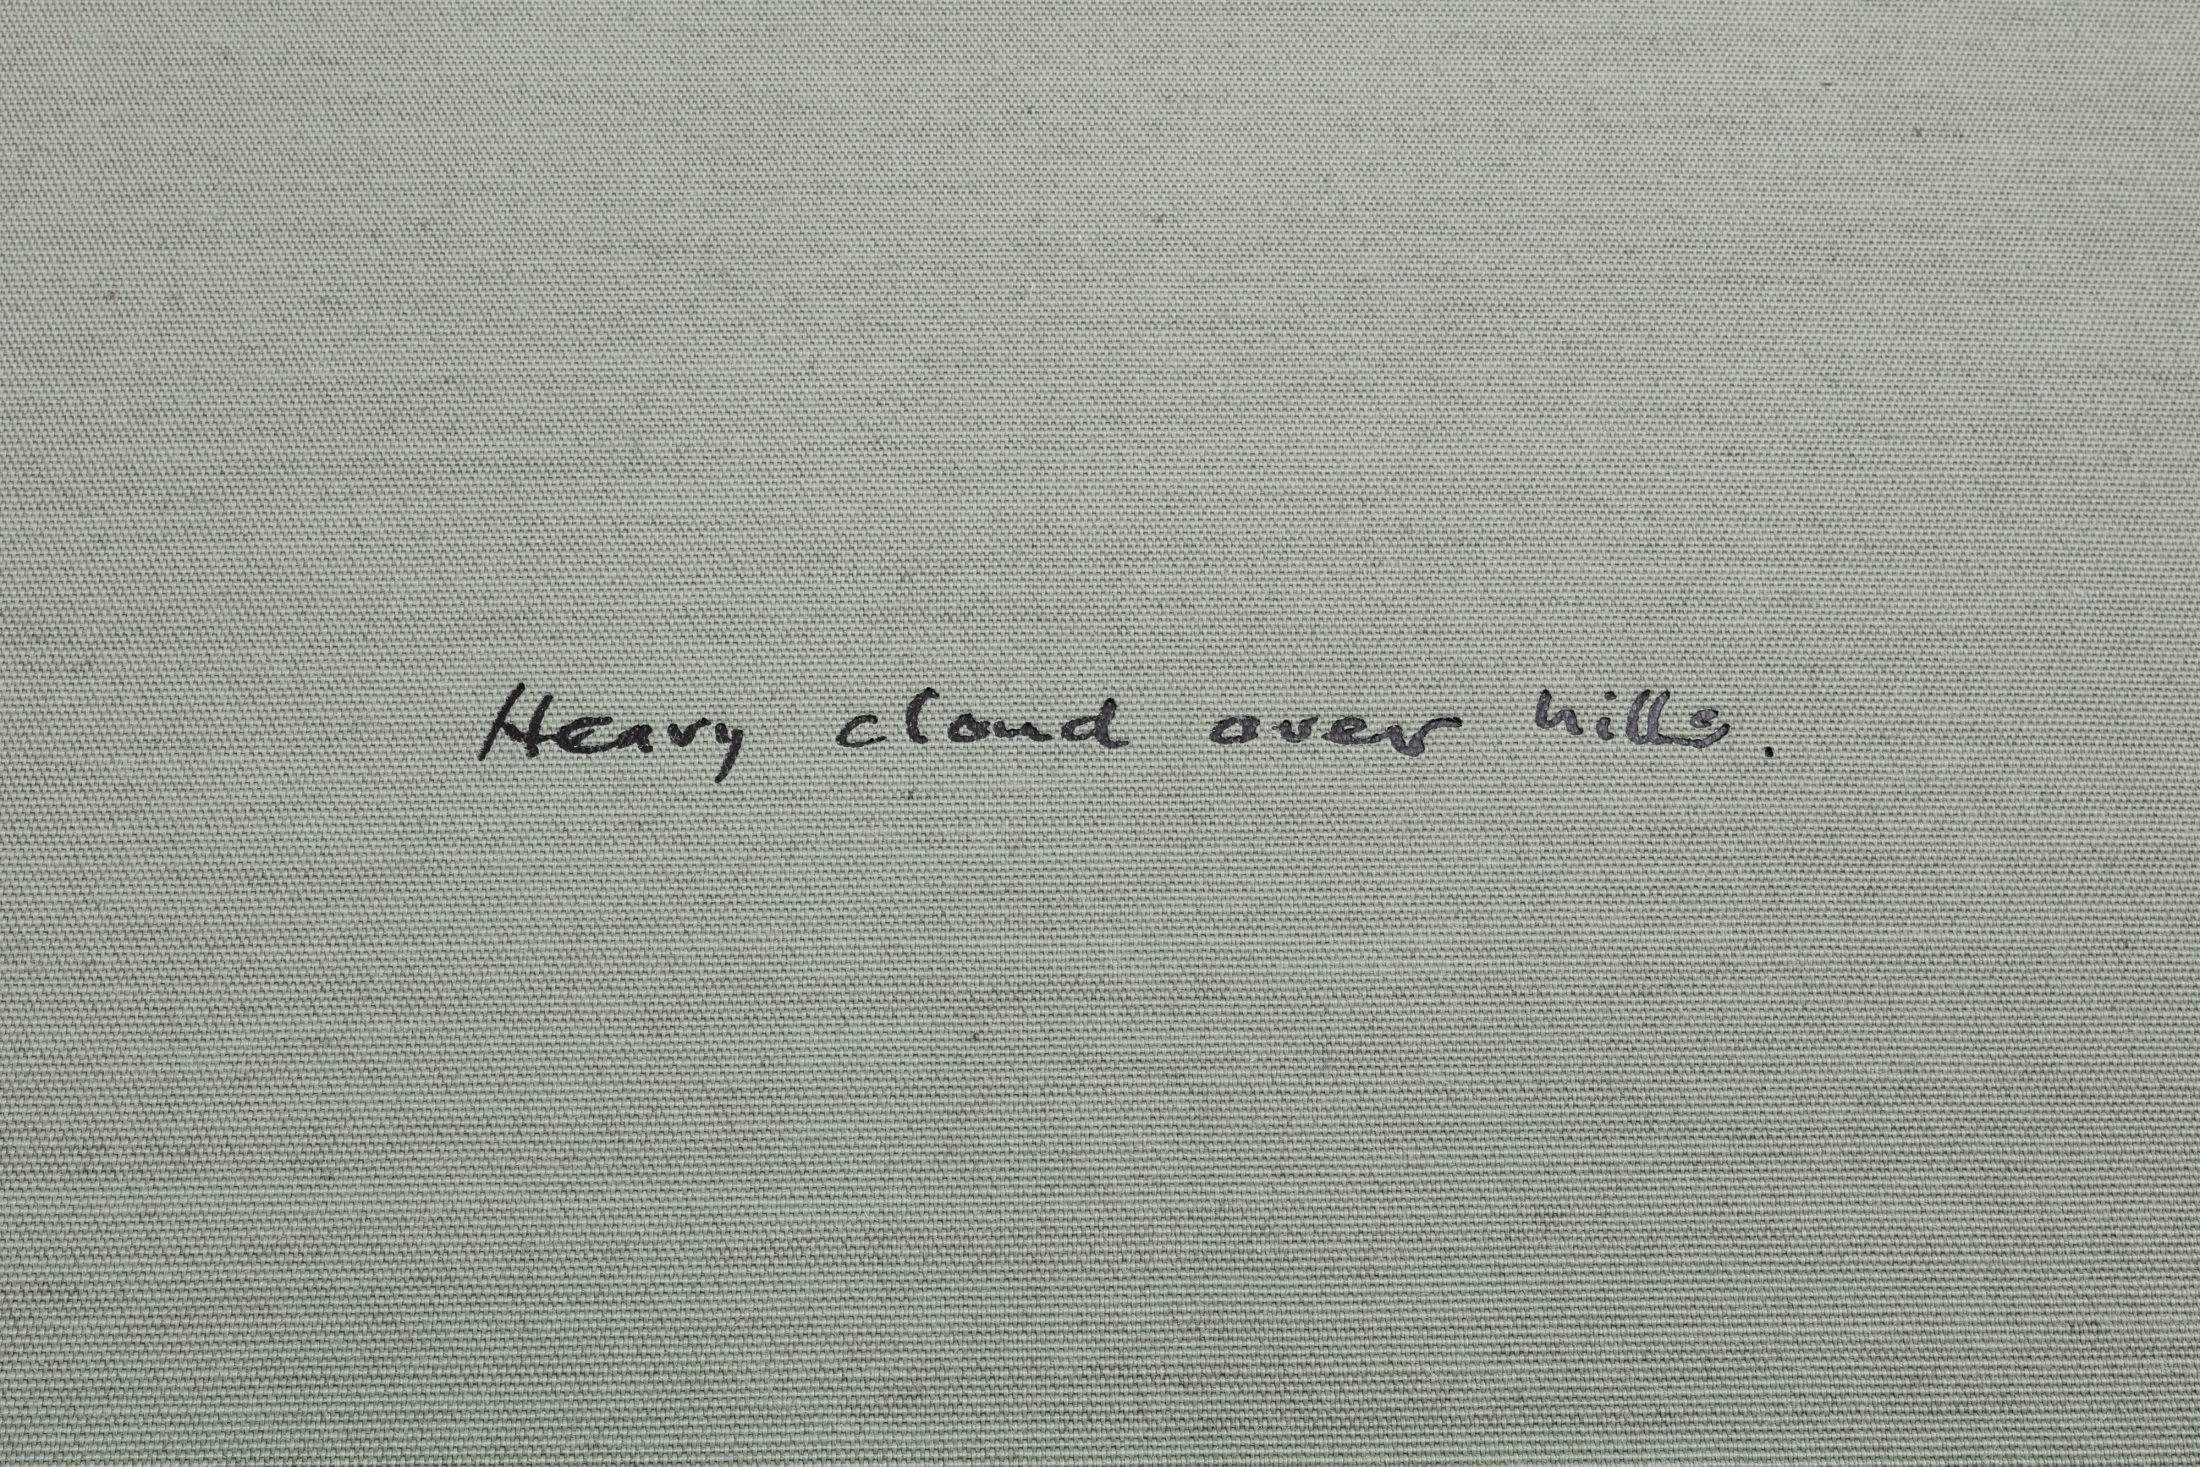 Heavy cloud over hills.